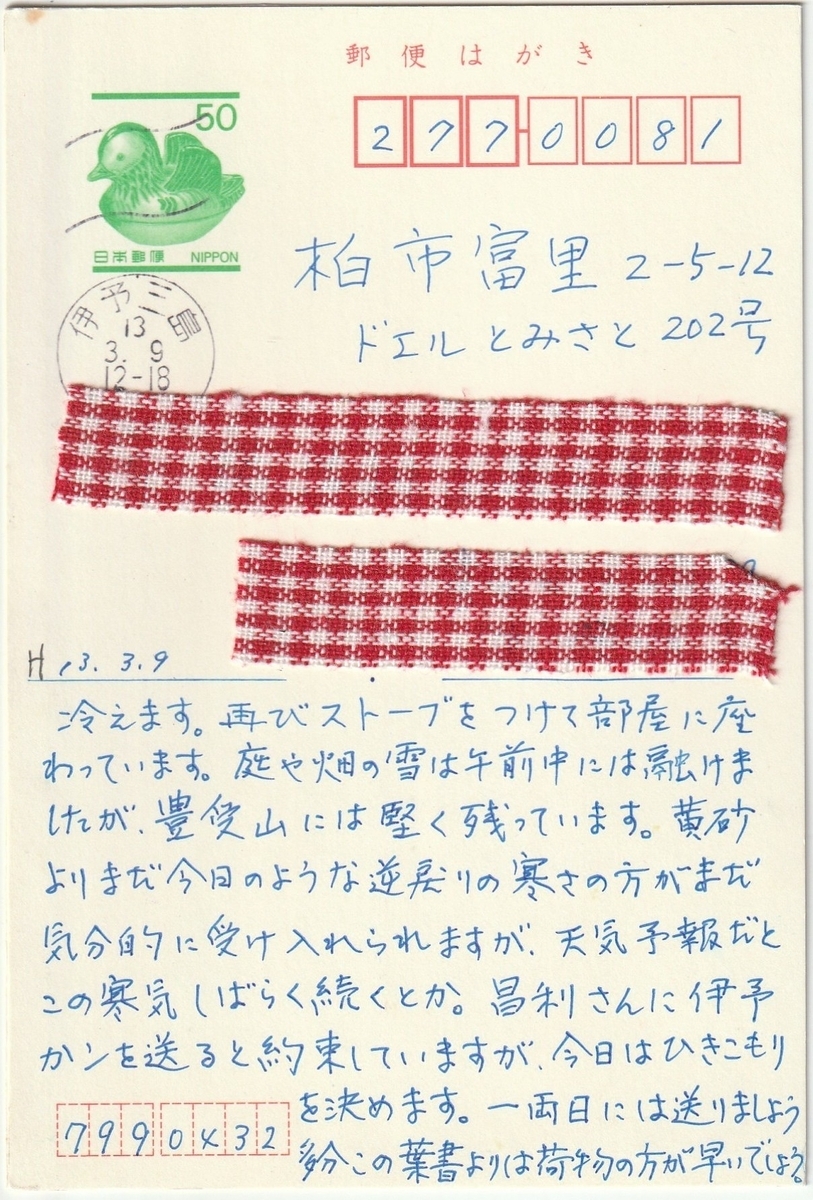 郵便はがき
50
277-0081
日本郵便 NIPPON
柏市富里 2-5-12
ドエルとみさと 202号
伊予三島
13
3. 9
12-18
H13.3.9
冷えます。再びストーブをつけて部屋に座
わっています。庭や畑の雪は午前中には融けま
したが、豊受山には堅く残っています。黄砂
よりまだ今日のような逆戻りの寒さの方がまだ
気分的に受け入れられますが、天気予報だと
この寒気しばらく続くとか。昌利さんに伊予
カンを送ると約束していますが、今日はひきこもり
を決めます。一両日には送りましょう
多分この葉書よりは荷物の方が早いでしょう。
7990432